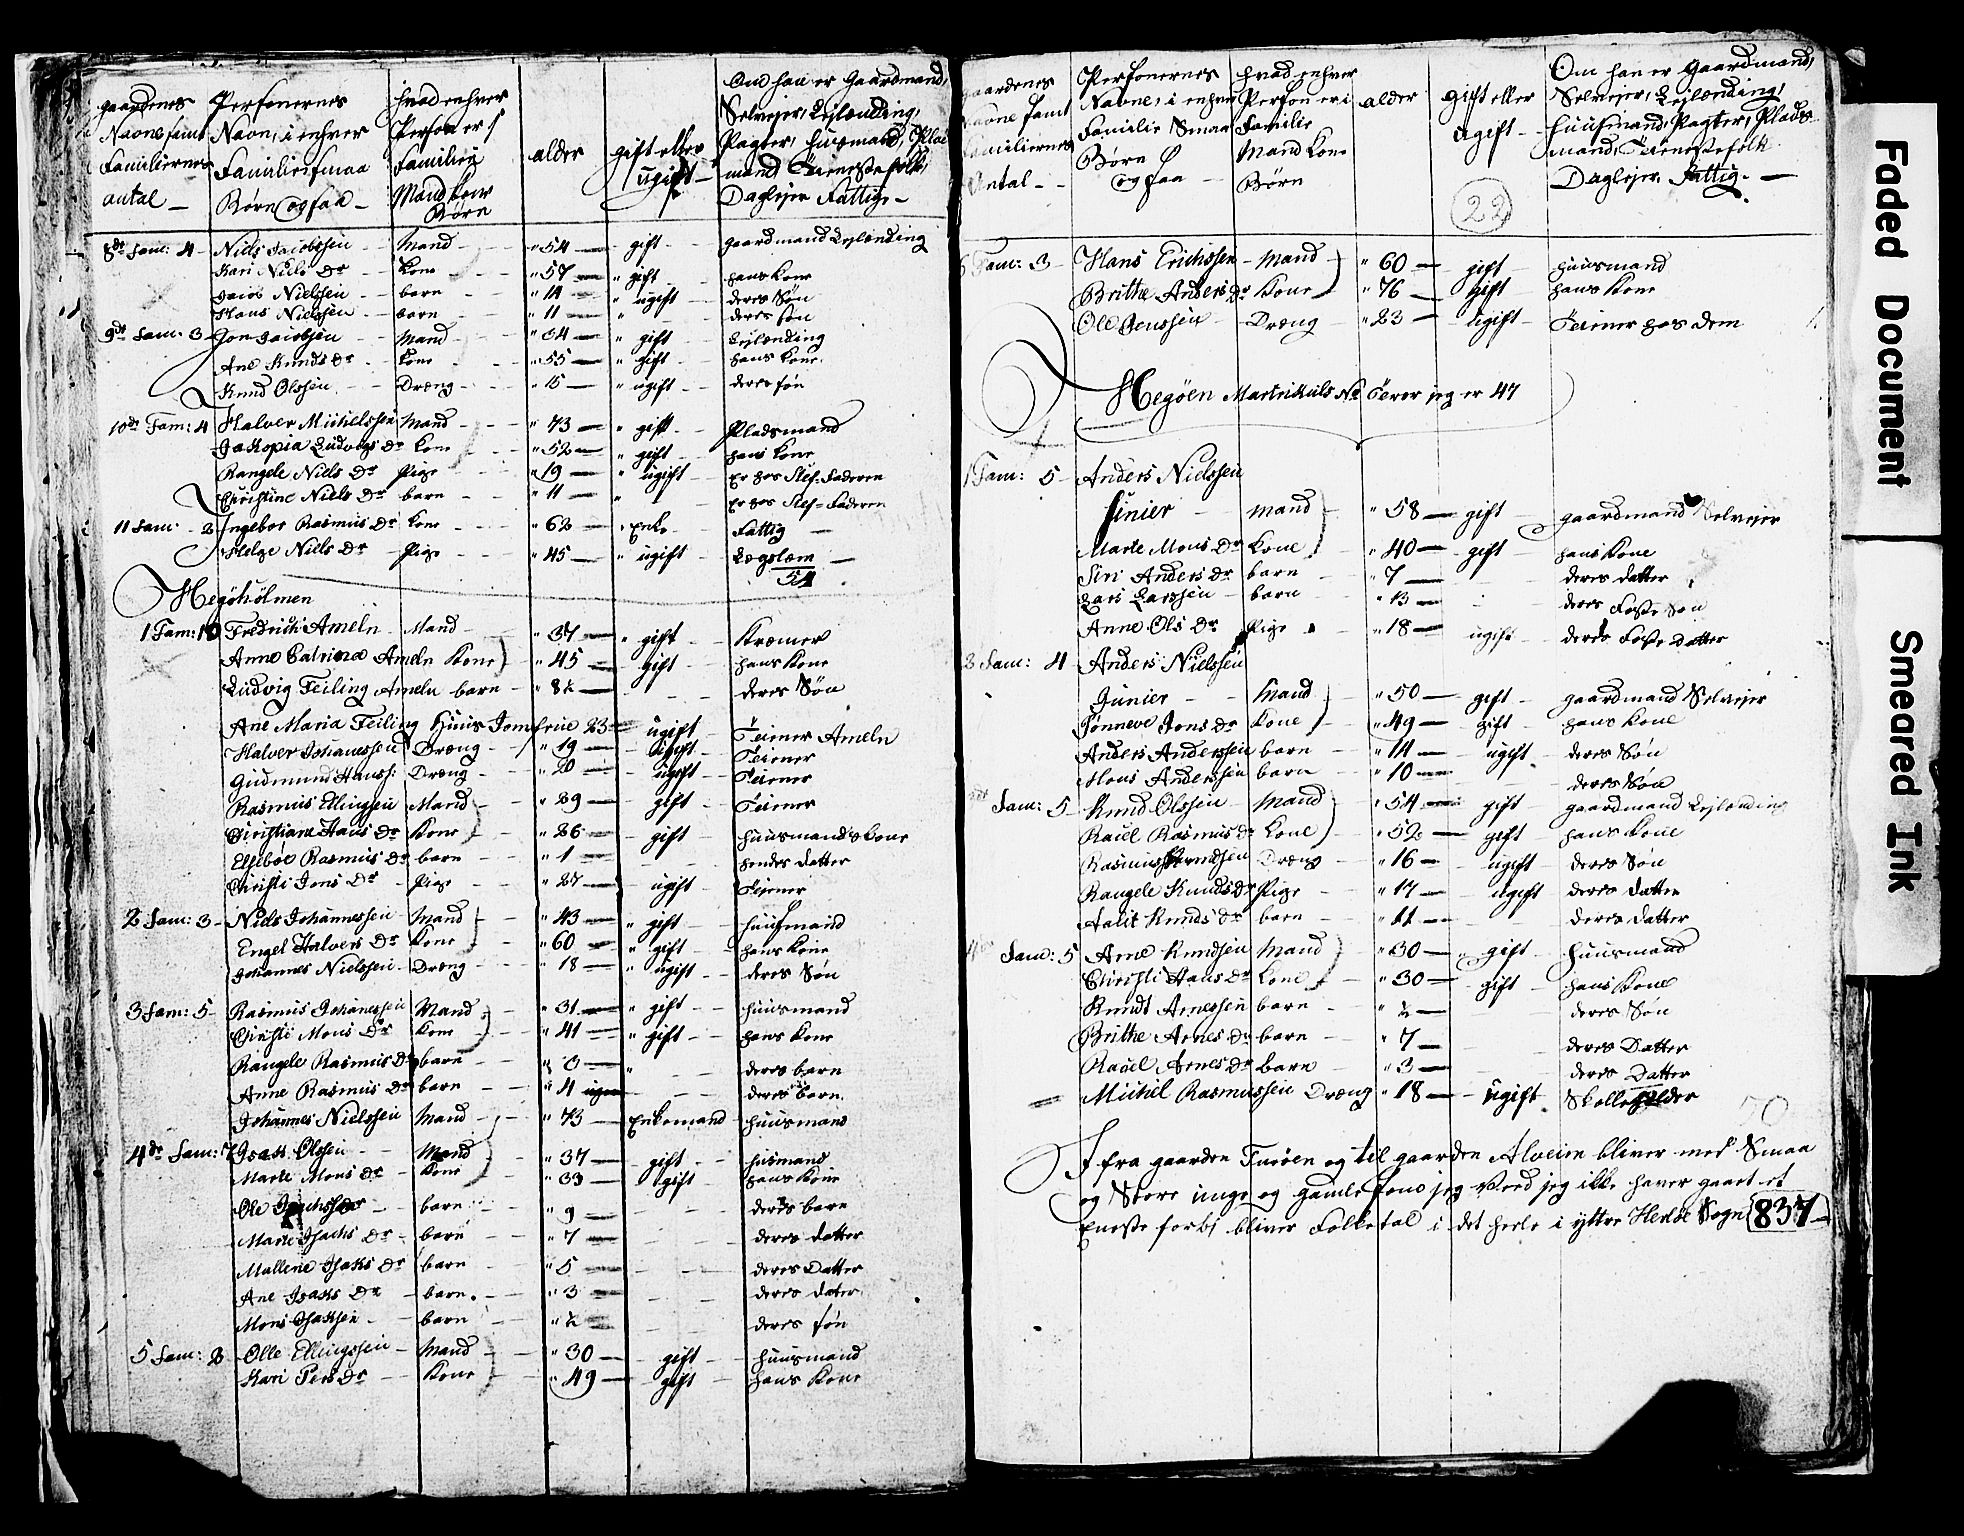 gaardenes Navne samt Familiernes antal —
Personernes Navn, i enhver Familie smaa Børn og saa —
hvad enhver Person er i Familien Mand kone Børn
alder
gift eller ugift —
Om han er Gaardmand, Selvejer, Lejlænding, Pagter, huusmand, Plads mand Tieneste folk, Daglejer Fattige —
8de Fam: 4 Niels Jacobsen Mand " 54 gift gaardmand Lejlænding
Kari Niels Dr kone " 57 " gift hans kone
Jacob Nielssen barn " 14 " ugift deres Søn
Hans Nielssen barn " 11 " deres søn
9de Fam: 3 Jon Jacobsen Mand " 34 " gift Lejlænding
Ane Knuds Dr kone " 55 " gift hans kone
Knud Olssen Dreng " 15 " ugift deres søn
10de Fam: 4 Halver Michelssen Mand " 73 " gift Pladsmand
Ludvigs Dr kone " 52 " gift hans kone
Rangele Niels Dr Pige " 19 " ugift er hos Stef-Faderen
Christine Niels Dr barn " 11 " er hos Stef-Faderen
11 Fam: 2 Ingebor Rasmus Dr kone " 62 " Enke Fattig
Helge Niels Dr Pige " 45 " ugift Lægslem
54
Hegöholmen
1 Fam: 10 Fredrich Ameln Mand " 37 " gift Kræmer
Anne Catrina Ameln Kone " 45 gift hans kone
Ludvig Feiling Ameln barn " 8½ deres Søn
Ane Maria Feiling Huus Jomfrue 23 ugift Teiner Ameln
Halver Johanessen Dreng " 19 ugift Teiener
Gudmund Hanss: Dreng " 20 ugift Teiener
Rasmus Ellingsen Mand " 29 gift Teiener
Christiane Hans Dr Kone " 26 gift huusmands kone
Rasmus Dr barn " 1 hendes datter
Christi Jons Dr Pige " 27 ugift Teiener
2 Fam: 3 Niels Johannessen Mand " 43 " gift huusmand
Engel Halvers Dr Kone " 60 " gift hans kone
Johannes Nielssen Dreng " 18 " ugift deres Søn
3 Fam: 5 Rasmus Johanessen Mand " 31 " gift huusmand
Christi Mons Dr kone " 41 " gift hans kone
Rangele Rasmus Dr barn " deres barn
Anne Rasmus Dr barn " 4 uger deres barn
Johannes Nielssen Mand " 73 Enkemand huusmand
4de Fam: 7 Isack Olssen Mand " 37 gift husmand
Marte Mons Dr kone " 39 gift hans kone
Ole barn " 9 deres barn
Marte Isachs Dr barn " 7 deres datter
Mallene Isaks Dr barn " 5 deres Datter
Ane Isaks Dr barn " 3 deres dater
Mons Isaksen barn " ½ deres søn
5 Fam: 2 Olle Ellingssen Mand " 30 gift huusmand
Kari Pers Dr Kone " 49 gift hans kone
gaardenes Navne samt Familiernes Antal
Personernes Navne, i enhver Familie Smaa Børn og saa
hvad enhver Person er i Familie Mand kone Børn
alder
gift eller ugift
Om han er Gaardmand, Selvejer, Lejlænding, huusmand, Pagter, Plads mand, Tieneste folk Daglejer, Fattig.
22
5 Fam: 3 Hans Erichssen Mand " 60 gift huusmand
Brithe Anders Dr Kone " 76 gift hans kone
Ole Dreng " 23 ugift Teiener hos dem
Hegöen Martrikuls No 47
1 Fam: 5 Anders Nielssen
Junier mand " 58 gift gaardmand Selvejer
Marte Mons Dr Kone " 40 gift hans kone
Siri Anders Dr barn " 7 deres datter
Lars Larssen barn " 13 deres Foster Søn
Anne Ols Dr Pige " 18 ugift deres Foster datter
2 Fam: 4 Anders Nielssen
Junier Mand " 50 gift gaardmand Selvejer
Sønneve Jons Dr Kone " 49 gift hans kone
Anders Anderssen barn " 14 ugift deres Søn
Mons Anderssen barn " 10 deres Søn
Fam: 5 Knud Olssen Mand " 54 gift gaardmand Lejlænding
Rasmus Dr Kone " 52 gift hans kone
Rasmus Knudssen Dreng " 16 ugift deres Søn
Rangele Knuds Dr Pige " 17 ugift deres datter
Knuds Dr barn " 11 deres datter
Fam: 5 Arne Knudsen Mand " 30 gift huusmand
Christi Hans Dr Kone " 30 gift hans kone
Knudt Arnessen barn " ½ deres Søn
Brithe Arnes Dr barn " 7 deres Datter
Arnes Dr barn " 3 deres Datter
Michel Rasmussen Dreng " 18 ugift Skolleholder
fra gaarden og til gaarden Alveim bliver med Smaa
og Store unge og gamle som jeg Veed jeg ikke haver gaaet et
eneste forbj bliver Folketal i det hele i yttre Herløe Sogn 837
Faded Document
Smeared Ink